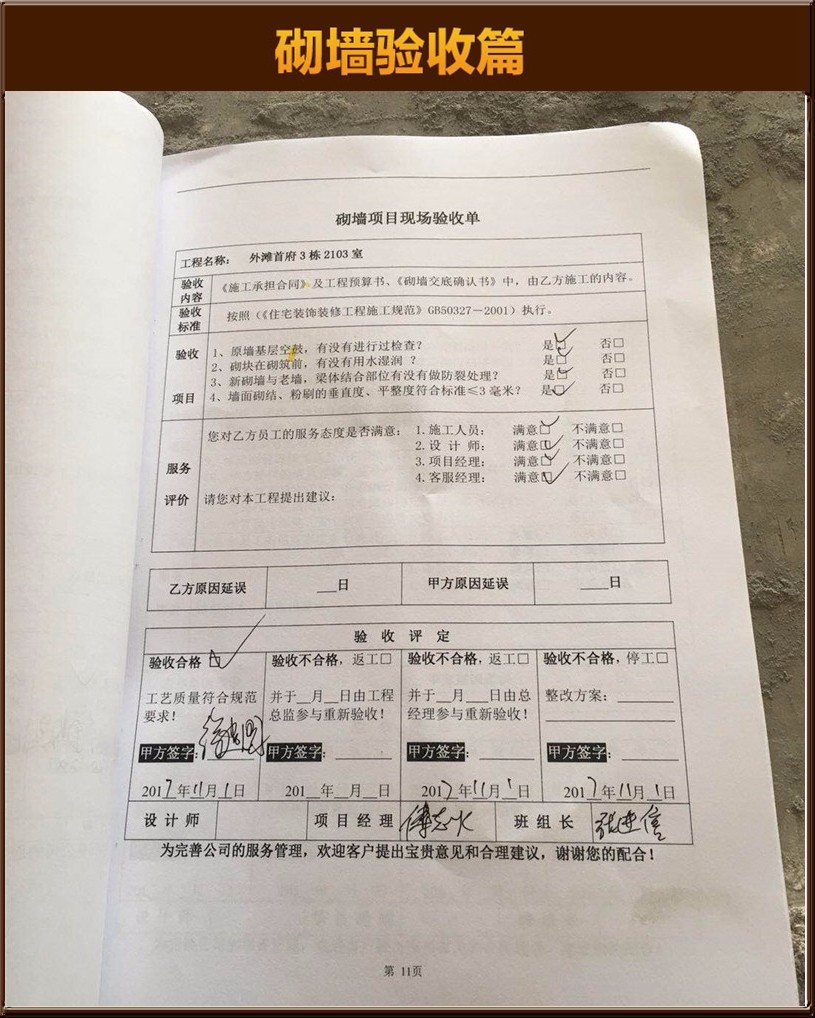 砌墙验收篇
砌墙项目现场验收单
工程名称： 外滩首府3栋2103室
验收内容 《施工承担合同》及工程预算书、《砌墙交底确认书》中，由乙方施工的内容。
验收标准 按照（《住宅装饰装修工程施工规范》GB50327－2001）执行。
验收项目
1、原墙基层空鼓，有没有进行过检查？ 是☑ 否□
2、砌块在砌筑前，有没有用水湿润？ 是☑ 否□
3、新砌墙与老墙，梁体结合部位有没有做防裂处理？ 是☑ 否□
4、墙面砌结、粉刷的垂直度、平整度符合标准≤3毫米？ 是☑ 否□
服务评价
您对乙方员工的服务态度是否满意： 1.施工人员： 满意☑ 不满意□
2.设计师： 满意☑ 不满意□
3.项目经理： 满意☑ 不满意□
4.客服经理： 满意☑ 不满意□
请您对本工程提出建议：
乙方原因延误 __日 甲方原因延误 __日
验收评定
验收合格☑ 验收不合格，返工□ 验收不合格，返工□ 验收不合格，停工□
工艺质量符合规范 并于__月__日由工程 并于__月__日由总 整改方案：____
要求！ 总监参与重新验收！ 经理参与重新验收！
甲方签字： 甲方签字：____ 甲方签字：____ 甲方签字：____
2017年11月1日 201__年__月__日 2017年11月1日 2017年11月1日
设计师 项目经理 班组长
为完善公司的服务管理，欢迎客户提出宝贵意见和合理建议，谢谢您的配合！
第 11页